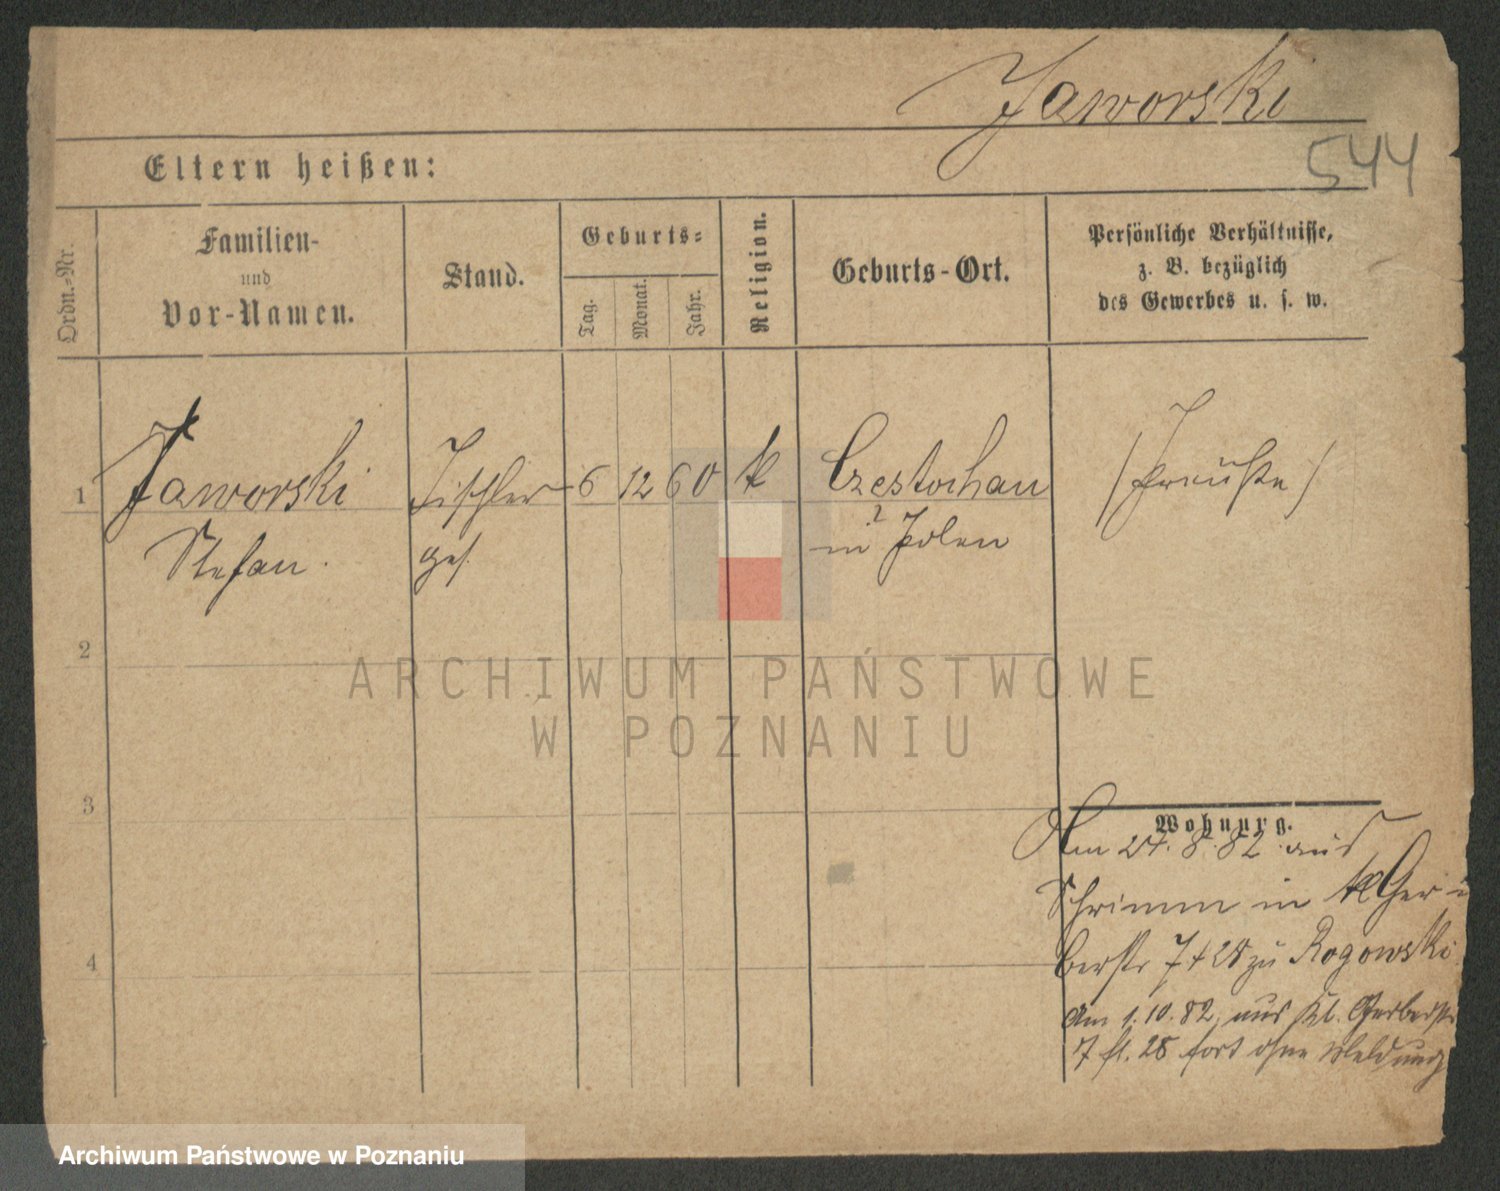 Jaworski
544
Eltern heißen:
Ordn.-Nr.
Familien-
und
Vor-Namen.
Stand.
Geburts-
Tag.
Monat.
Jahr.
Religion.
Geburts-Ort.
Persönliche Verhältnisse,
z. B. bezüglich
des Gewerbes u. s. w.
1 Jaworski Tischler 6 12 60 k Czestochau (Preuße)
Stefan. ges. in Polen
?
2
ARCHIWUM PAŃSTWOWE
W POZNANIU
3
Wohnung.
Am 27. 8. 82 aus
Schrimm in kl Ger
berstr 7 zu Rogowski
4
Am 1. 10. 82 aus Kl. Gerberstr
7 fort ohne Meldung
Archiwum Państwowe w Poznaniu